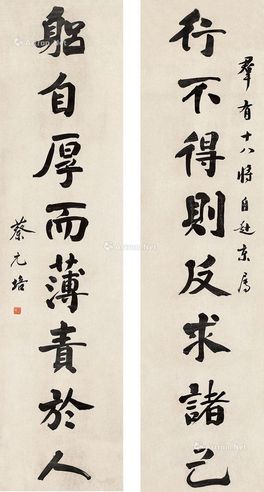 羣有十八將自赴京屬
行不得則反求諸己
躬自厚而薄責於人
蔡元培